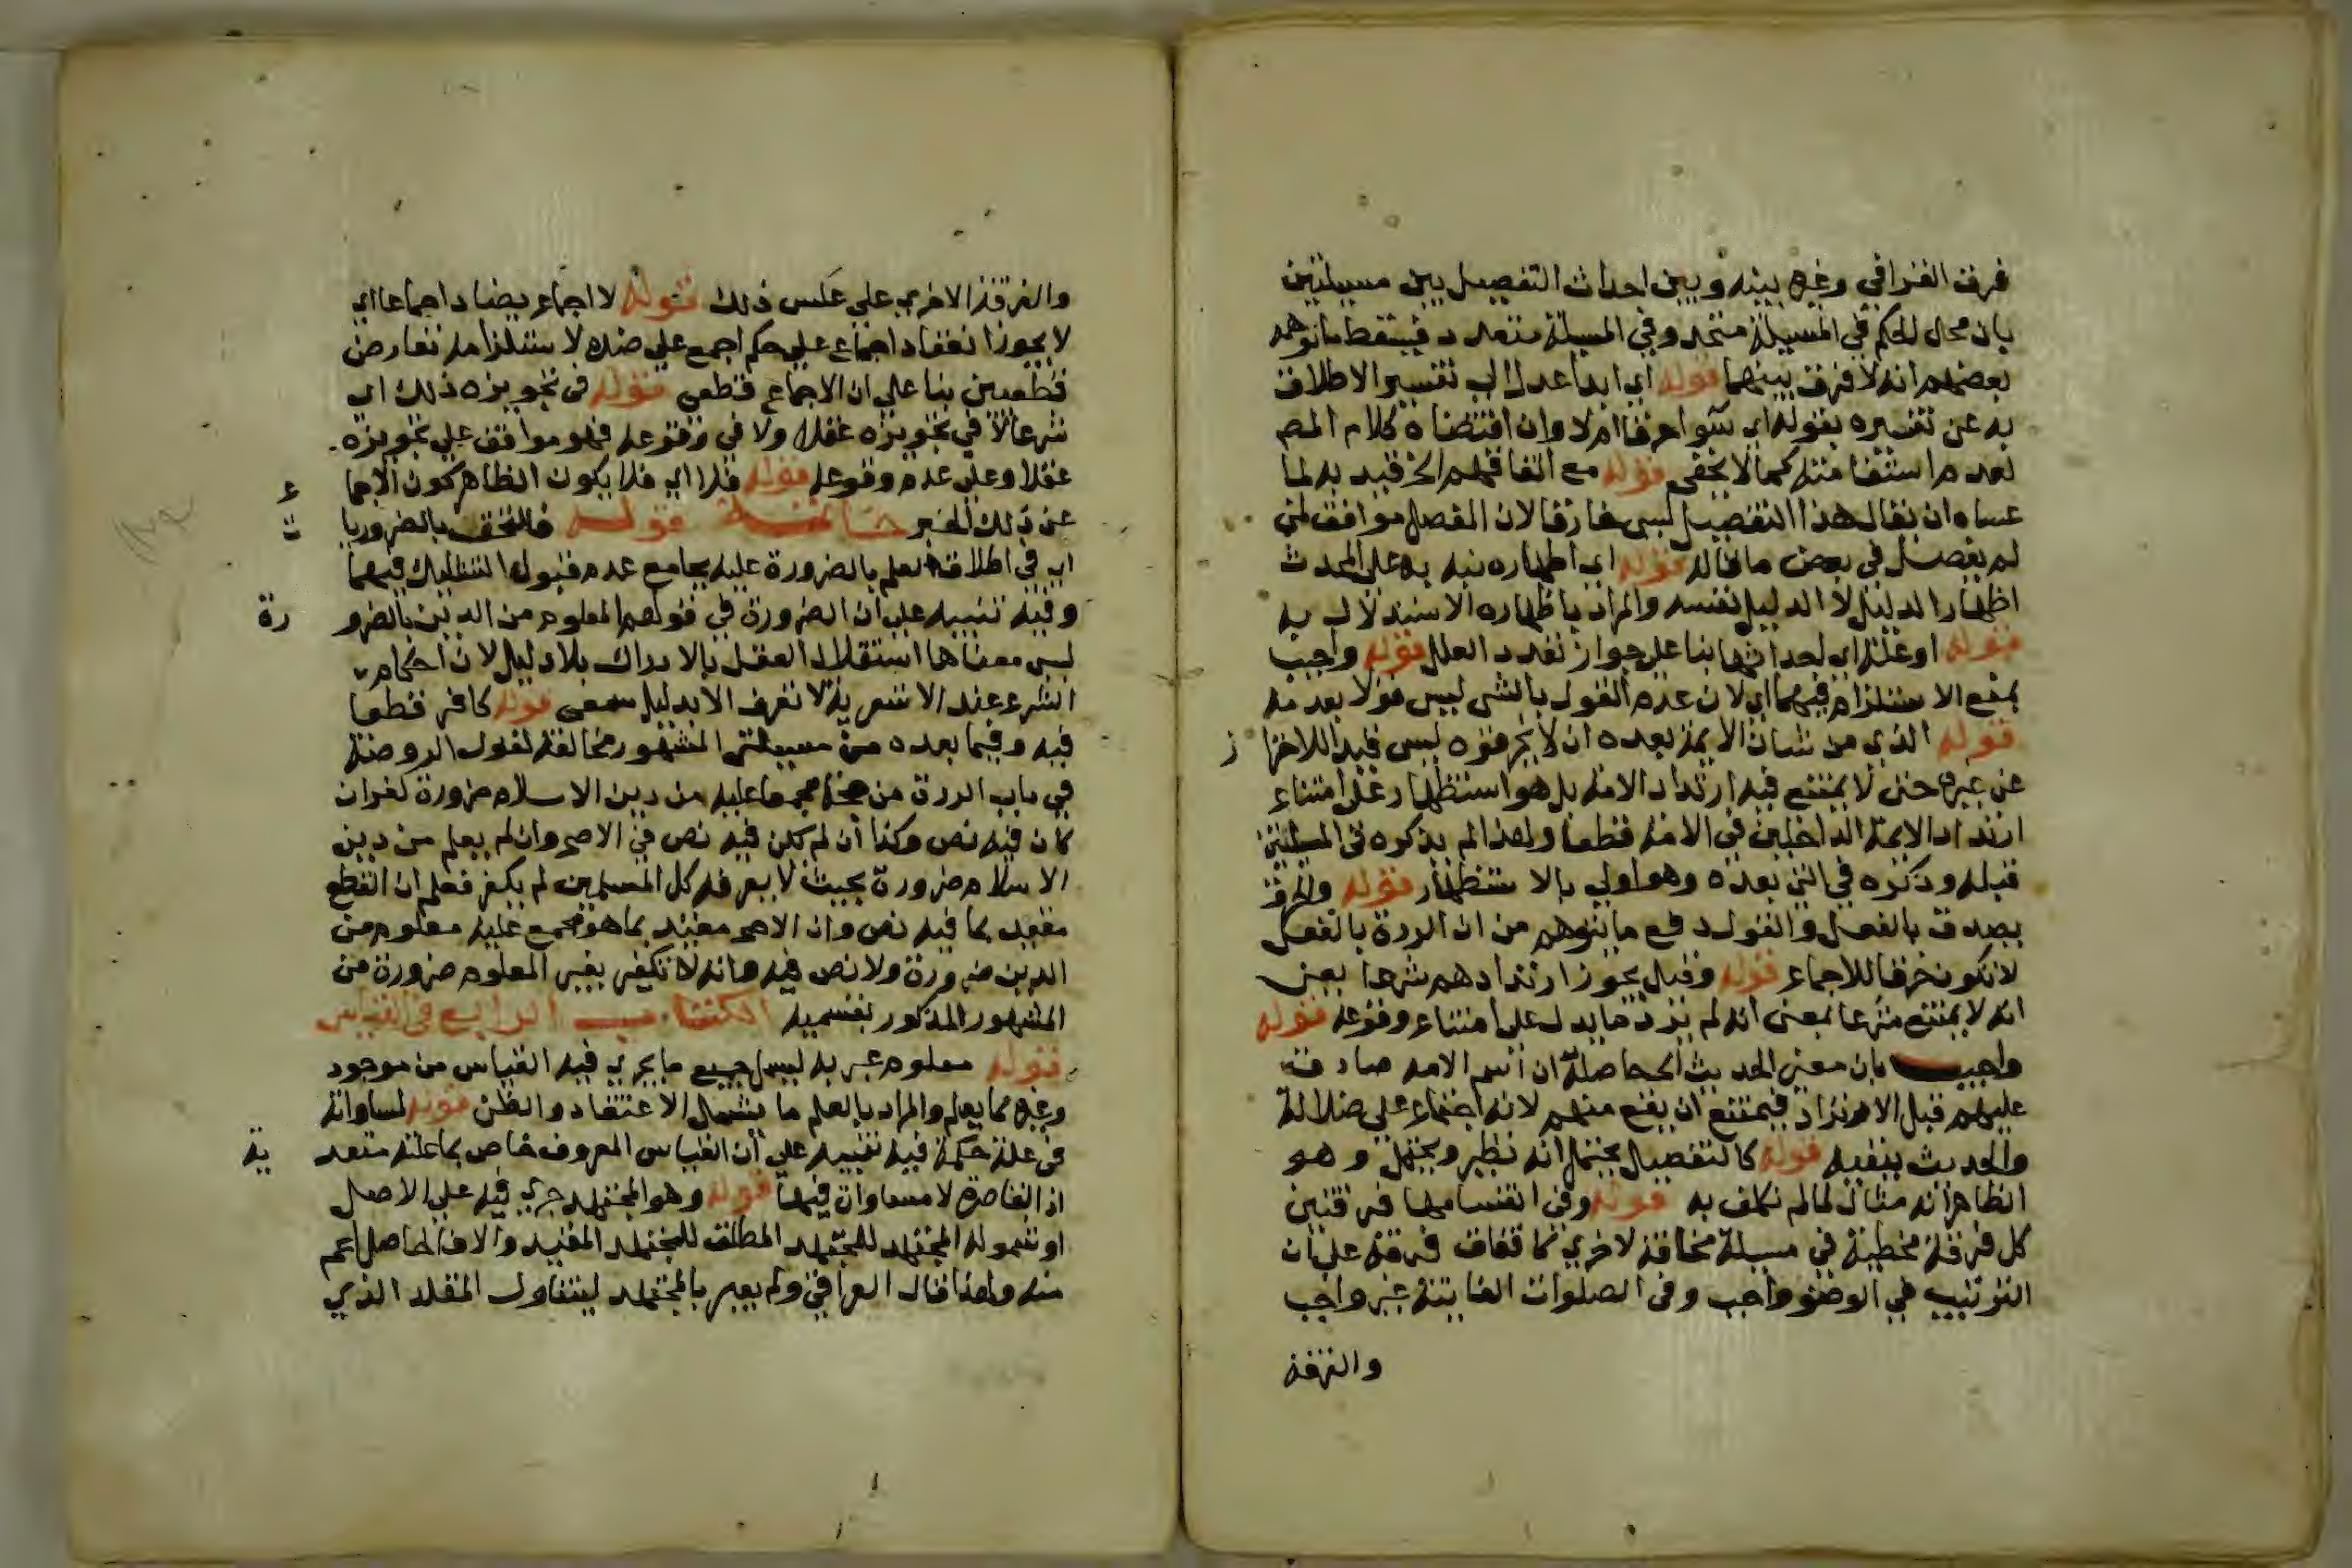 فرق القرافي وغيره بينه وبين احداث التفصيل بين مسيلتين
بان محل الحكم في المسيلة متحد وفي المسيلة متعدد فيسقط ما توهمه
بعضهم انه لا فرق بينهما قوله اي ابدا عدل الي تفسير الاطلاق
به عن تفسيره بقوله اي سوا خرقا ام لا وان اقتضاه كلام المص
لعدم استقامته كما لا يخفى قوله مع اتفاقهم الخ قيد به لما
عساه ان يقال هذا التفصيل ليس خارقا لان المفصل موافق لمن
لم يفصل في بعض ما قاله قوله اي اظهاره نبه به على المحدث
اظهار الدليل لا الدليل نفسه والمراد باظهاره الاستدلال به
قوله او علة اي احداثها بنا على جواز تعدد العلل قوله واجيب
بمنع الاستلزام فيهما اي لان عدم القول بالشي ليس قولا بعدمه
قوله الذي من شان الايمة بعده ان لا يخرقوه ليس قيدا للاحترا ز
عن غيره حتى لا يمتنع فيه ارتداد الامة بل هو استظهار على امتناع
ارتداد الايمة الداخلين في الامة قطعا ولهذا لم يذكره في المسيلتين
قبله وذكره في التي بعده وهو اولي بالاستظهار قوله والخرق
يصدق بالفعل والقول دفع ما يتوهم من ان الردة بالفعل
لا تكون خرقا للاجماع قوله وقيل يجوز ارتدادهم شرعا يعني
انه لا يمتنع شرعا بمعنى انه لم يرد ما يدل على امتناع وقوعه قوله
واجيب بان معنى الحديث الخ حاصله ان اسم الامة صادق
عليهم قبل الارتداد فيمتنع ان يقع منهم لانه اجتماع على ضلالة
والحديث ينفيه قوله كالتفصيل يحتمل انه نظير ويحتمل وهو
الظاهر انه مثال لما لم نكلف به قوله وفي انقسامها فرقتين
كل فرقة مخطية في مسيلة مخالفة لاخري كاتفاق فرقة على ان
الترتيب في الوضو واجب وفي الصلوات الفايتة غير واجب
والفرقة
والفرقة الاخري على عكس ذلك قوله لا اجماع يضاد اجماعا اي
لا يجوز انعقاد اجماع على حكم اجمع على ضده لاستلزامه تعارض
قطعيين بنا على ان الاجماع قطعي قوله في تجويزه ذلك اي
شرعا لا في تجويزه عقلا ولا في وقوعه فهو موافق على تجويزه
عقلا وعلى عدم وقوعه قوله فلا اي فلا يكون الظاهر كون الاجما ع
عن ذلك الخبر خاتمة قوله فالتحق بالضروريا ت
اي في اطلاق العلم بالضرورة عليه بجامع عدم قبول التشكيك فيهما
وفيه تنبيه على ان الضرورة في قولهم المعلوم من الدين بالضرو رة
ليس معناها استقلال العقل بالادراك بلا دليل لان احكام
الشرع عند الاشعرية لا تعرف الا بدليل سمعي قوله كافر قطعا
فيه وفيما بعده من مسيلتي المشهور مخالفة لقول الروضة
في باب الردة من جحد مجمعا عليه من دين الاسلام ضرورة كفر ان
كان فيه نص وكذا ان لم يكن فيه نص في الاصح وان لم يعلم من دين
الاسلام ضرورة بحيث لا يعرفه كل المسلمين لم يكفر فعلم ان القطع
مقيد بما فيه نص وان الاصح مقيد بما هو مجمع عليه معلوم من
الدين ضرورة ولا نص فيه وانه لا تكفير بغير المعلوم ضرورة من
المشهور المذكور بقسميه الكتاب الرابع في القياس
قوله معلوم عبر به ليشمل جميع ما يجري فيه القياس من موجود
وغيره مما يعلم والمراد بالعلم ما يشمل الاعتقاد والظن قوله لمساواته
في علة حكمه فيه تنبيه على ان القياس المعروف خاص بما علته متعد ية
اذ القاصرة لا مساواة فيها قوله وهو المجتهد جري فيه على الاصل
او شموله المجتهد للمجتهد المطلق للمجتهد المقيد والا فالحامل اعم
منه ولهذا قال العراقي ولم يعبر بالمجتهد ليتناول المقلد الذي